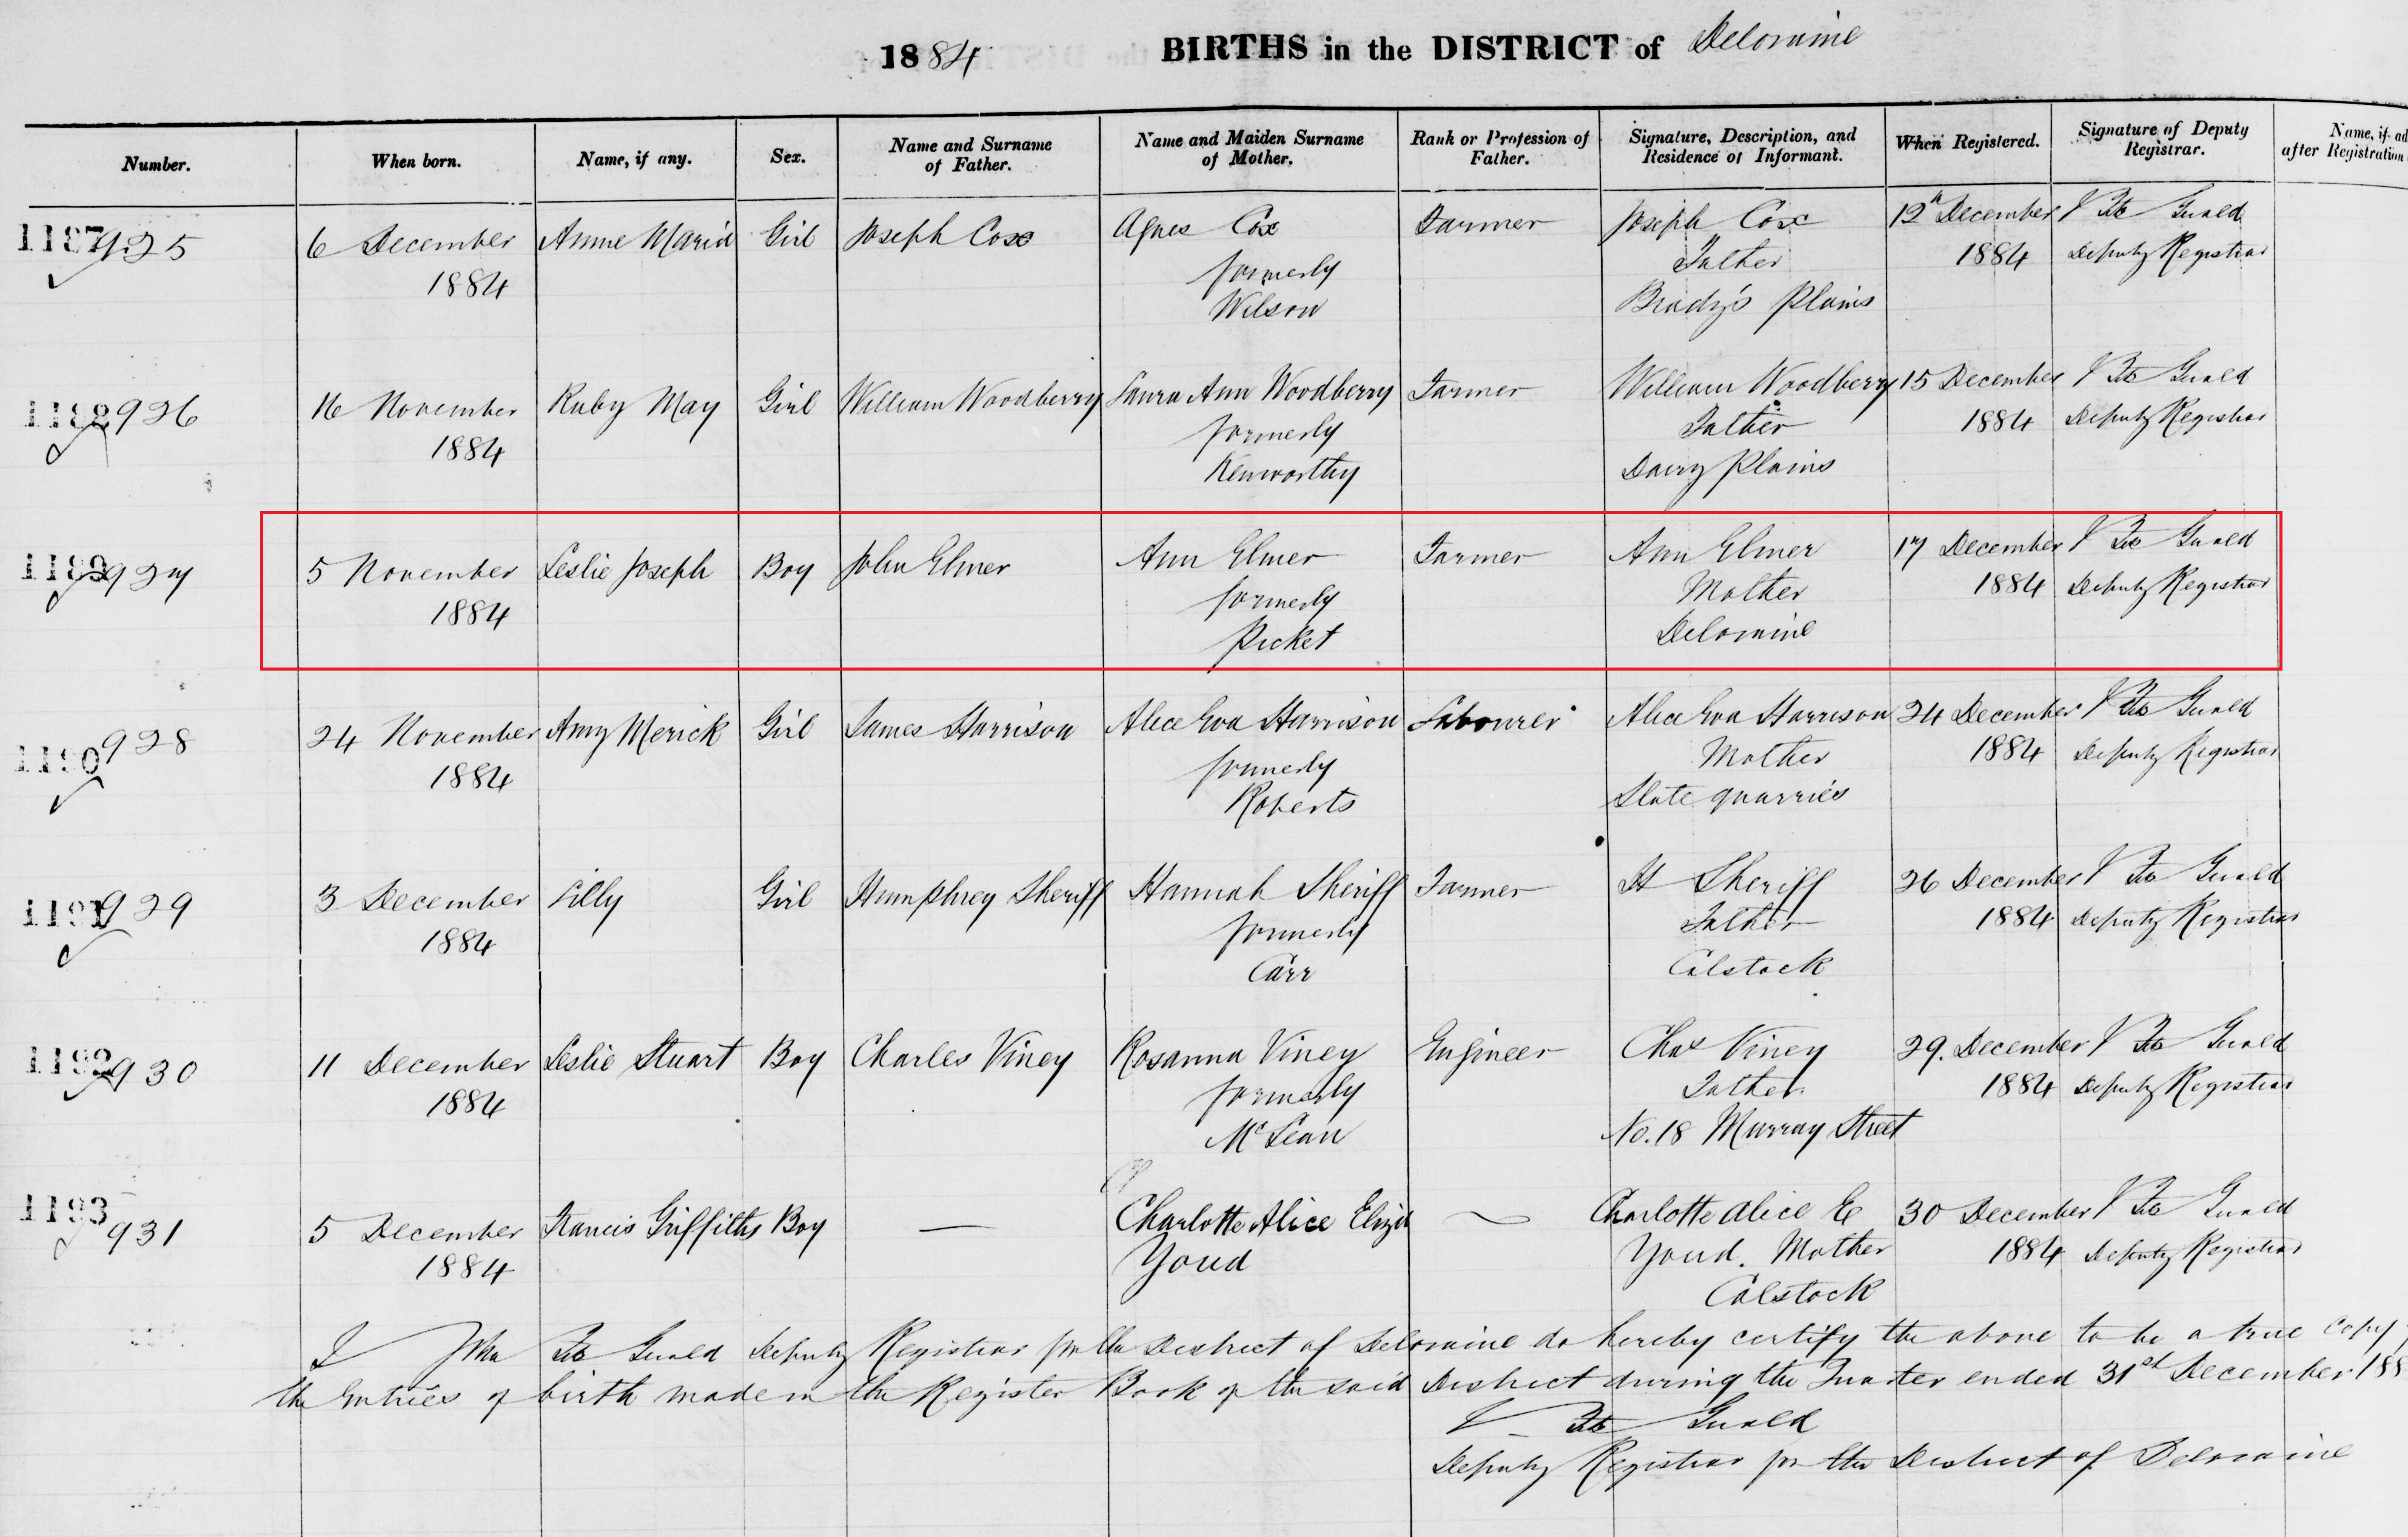 1884 BIRTHS in the DISTRICT of Deloraine
Number. When born. Name, if any. Sex. Name and Surname of Father. Name and Maiden Surname of Mother. Rank or Profession of Father. Signature, Description, and Residence of Informant. When Registered. Signature of Deputy Registrar. Name, if ad after Registration
1187 925 6 December Annie Maria Girl Joseph Cox Agnes Cox Farmer Joseph Cox 12th December
1884 formerly Father 1884 Deputy Registrar
Wilson Brady's Plains
1188 926 16 November Ruby May Girl William Woodberry Laura Ann Woodberry Farmer William Woodberry 15 December
1884 formerly Father 1884 Deputy Registrar
Kenworthy Dairy Plains
1189 927 5 November Leslie Joseph Boy John Elmer Ann Elmer Farmer Ann Elmer 17 December
1884 formerly Mother 1884 Deputy Registrar
Picket Deloraine
1190 928 24 November Amy Merick Girl James Harrison Alice Eva Harrison Labourer Alice Eva Harrison 24 December
1884 formerly Mother 1884 Deputy Registrar
Roberts Slate quarries
1191 929 3 December Lilly Girl Humphrey Sheriff Hannah Sheriff Farmer H Sheriff 26 December
1884 formerly Father 1884 Deputy Registrar
Carr Calstock
1192 930 11 December Leslie Stuart Boy Charles Viney Rosanna Viney Engineer Chas Viney 29. December
1884 formerly Father 1884 Deputy Registrar
McLean No. 18 Murray Street
1193 931 5 December Francis Griffiths Boy — Charlotte Alice Eliza — Charlotte Alice E 30 December
1884 Youd Youd. Mother 1884 Deputy Registrar
Calstock
I John Deputy Registrar for the District of Deloraine do hereby certify the above to be a true copy
the Entries of birth made in the Register Book of the said District during the Quarter ended 31st December 188
Deputy Registrar for the District of Deloraine